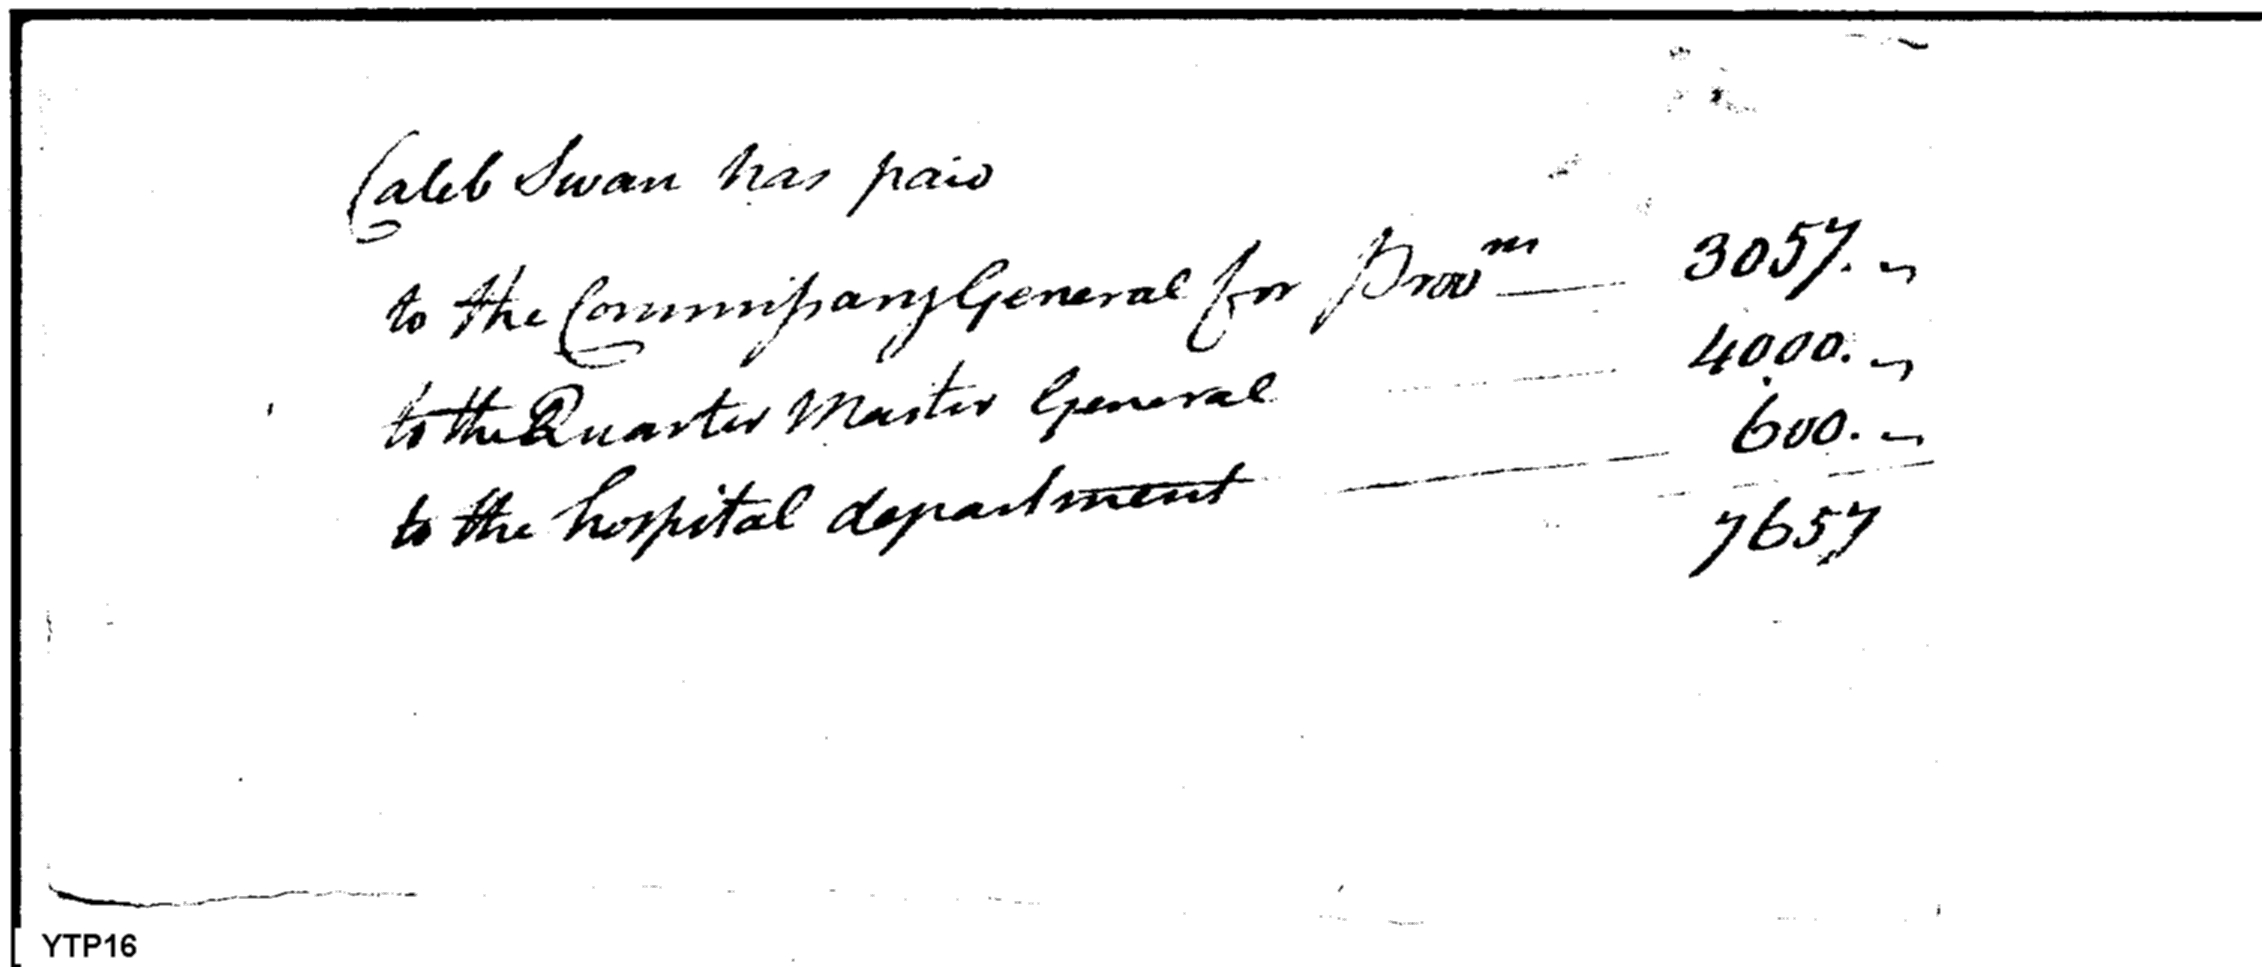 Caleb Swan has paid
to the Commissary General for Provns — 3057. „
to the Quarter Master General — 4000. „
to the hospital department — 600. „
7657
YTP16